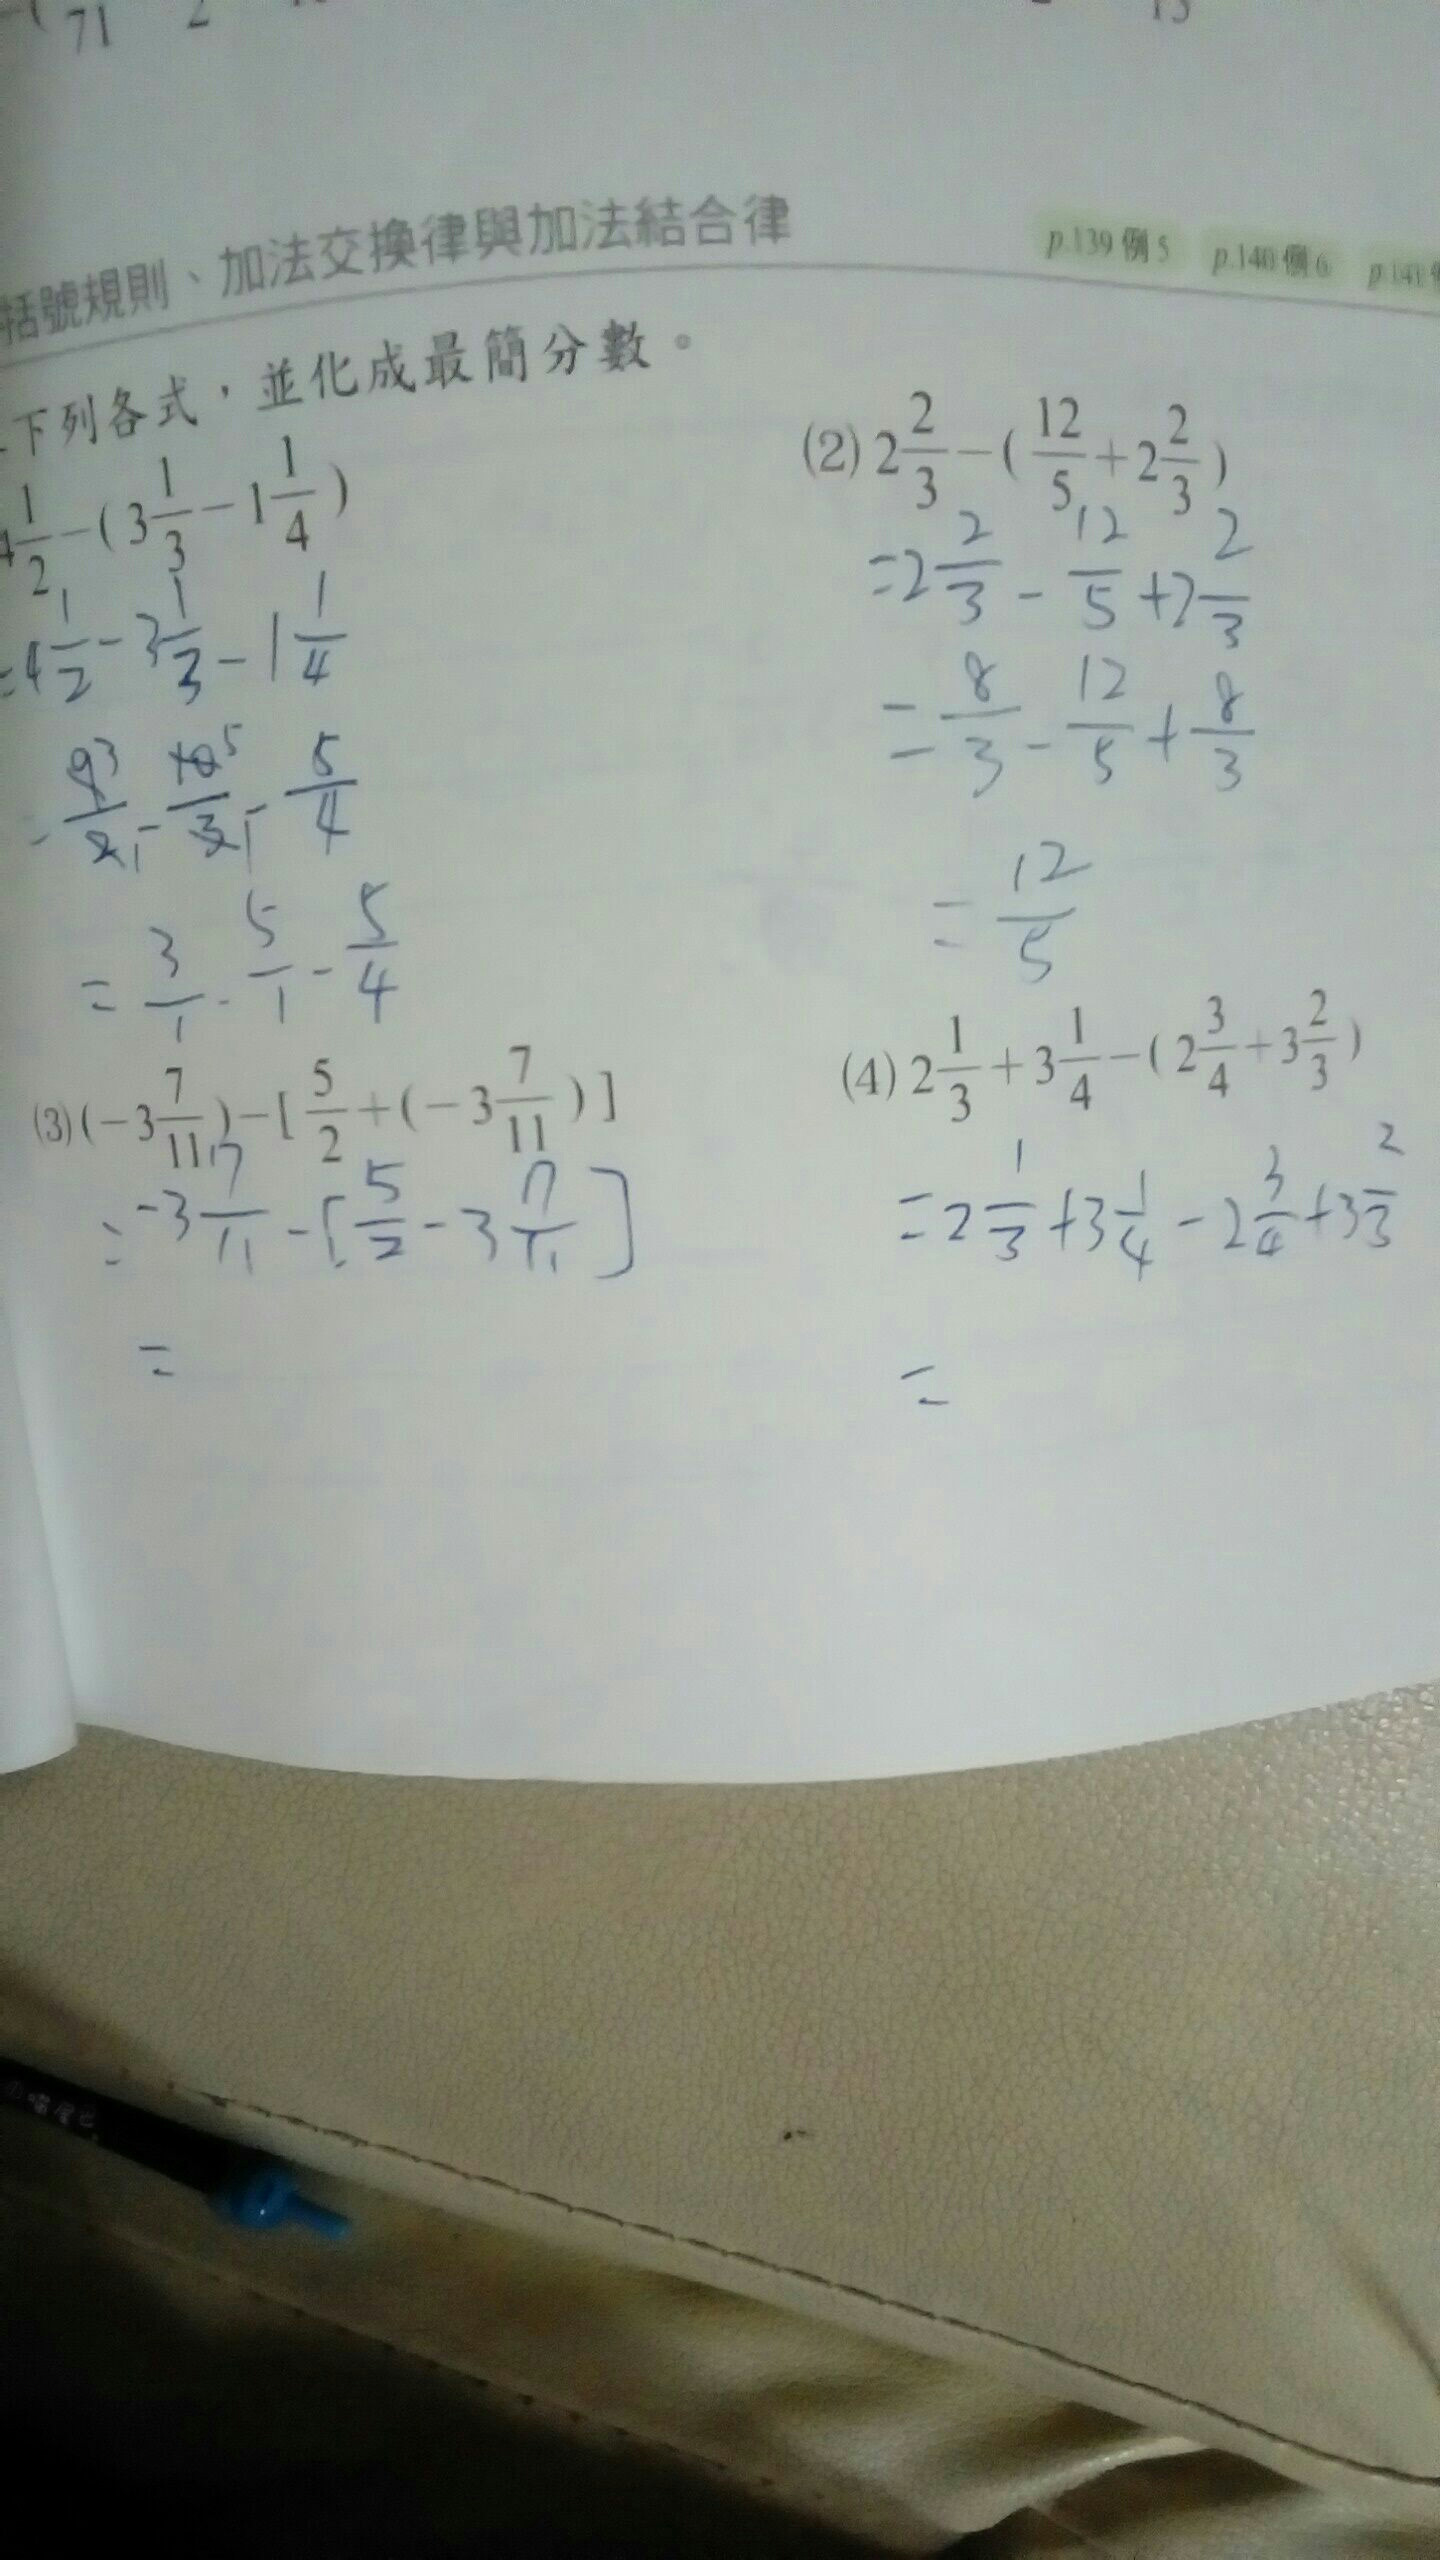 71 2
15
括號規則、加法交換律與加法結合律 p.139例5 p.140例6 p.141
下列各式，並化成最簡分數。
4 1/2 -( 3 1/3 - 1 1/4 )
= 4 1/2 - 3 1/3 - 1 1/4
= 9/2 3/1 - 10/3 5/1 - 5/4
= 3/1 - 5/1 - 5/4
(2) 2 2/3 -( 12/5 + 2 2/3 )
= 2 2/3 - 12/5 + 2 2/3
= 8/3 - 12/5 + 8/3
= 12/5
(3) (-3 7/11 )-[ 5/2 +(-3 7/11 )]
= -3 7/11 - [ 5/2 - 3 7/11 ]
=
(4) 2 1/3 + 3 1/4 -( 2 3/4 + 3 2/3 )
= 2 1/3 + 3 1/4 - 2 3/4 + 3 2/3
=